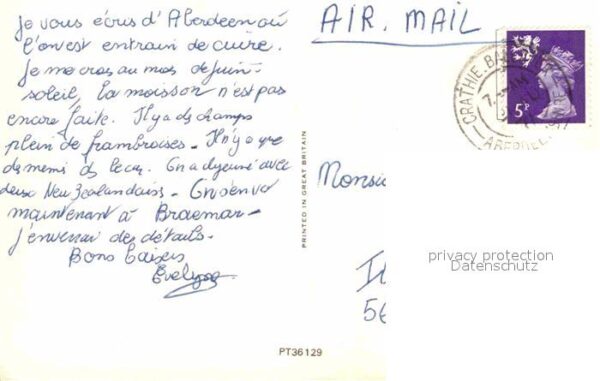 Je vous écris d'Aberdeen où
l'on est entrain de cuire.
Je me cros au mois de juin-
soleil, la moisson n'est pas
encore faite. Il y a des champs
plein de framboises - Il n'y a que
de lecas. On a dejeuné avec
deux New Zealandais - On s'en va
maintenant à Braemar -
j'enverrai des détails -
Bons baisers
Evelyne
PRINTED IN GREAT BRITAIN
PT36129
AIR. MAIL
5P
CRATHIE. BAL
ABERDEEN
Monsie
56
privacy protection
Datenschutz